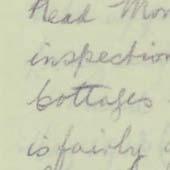 Head Mon
inspection
Cottages
is fairly